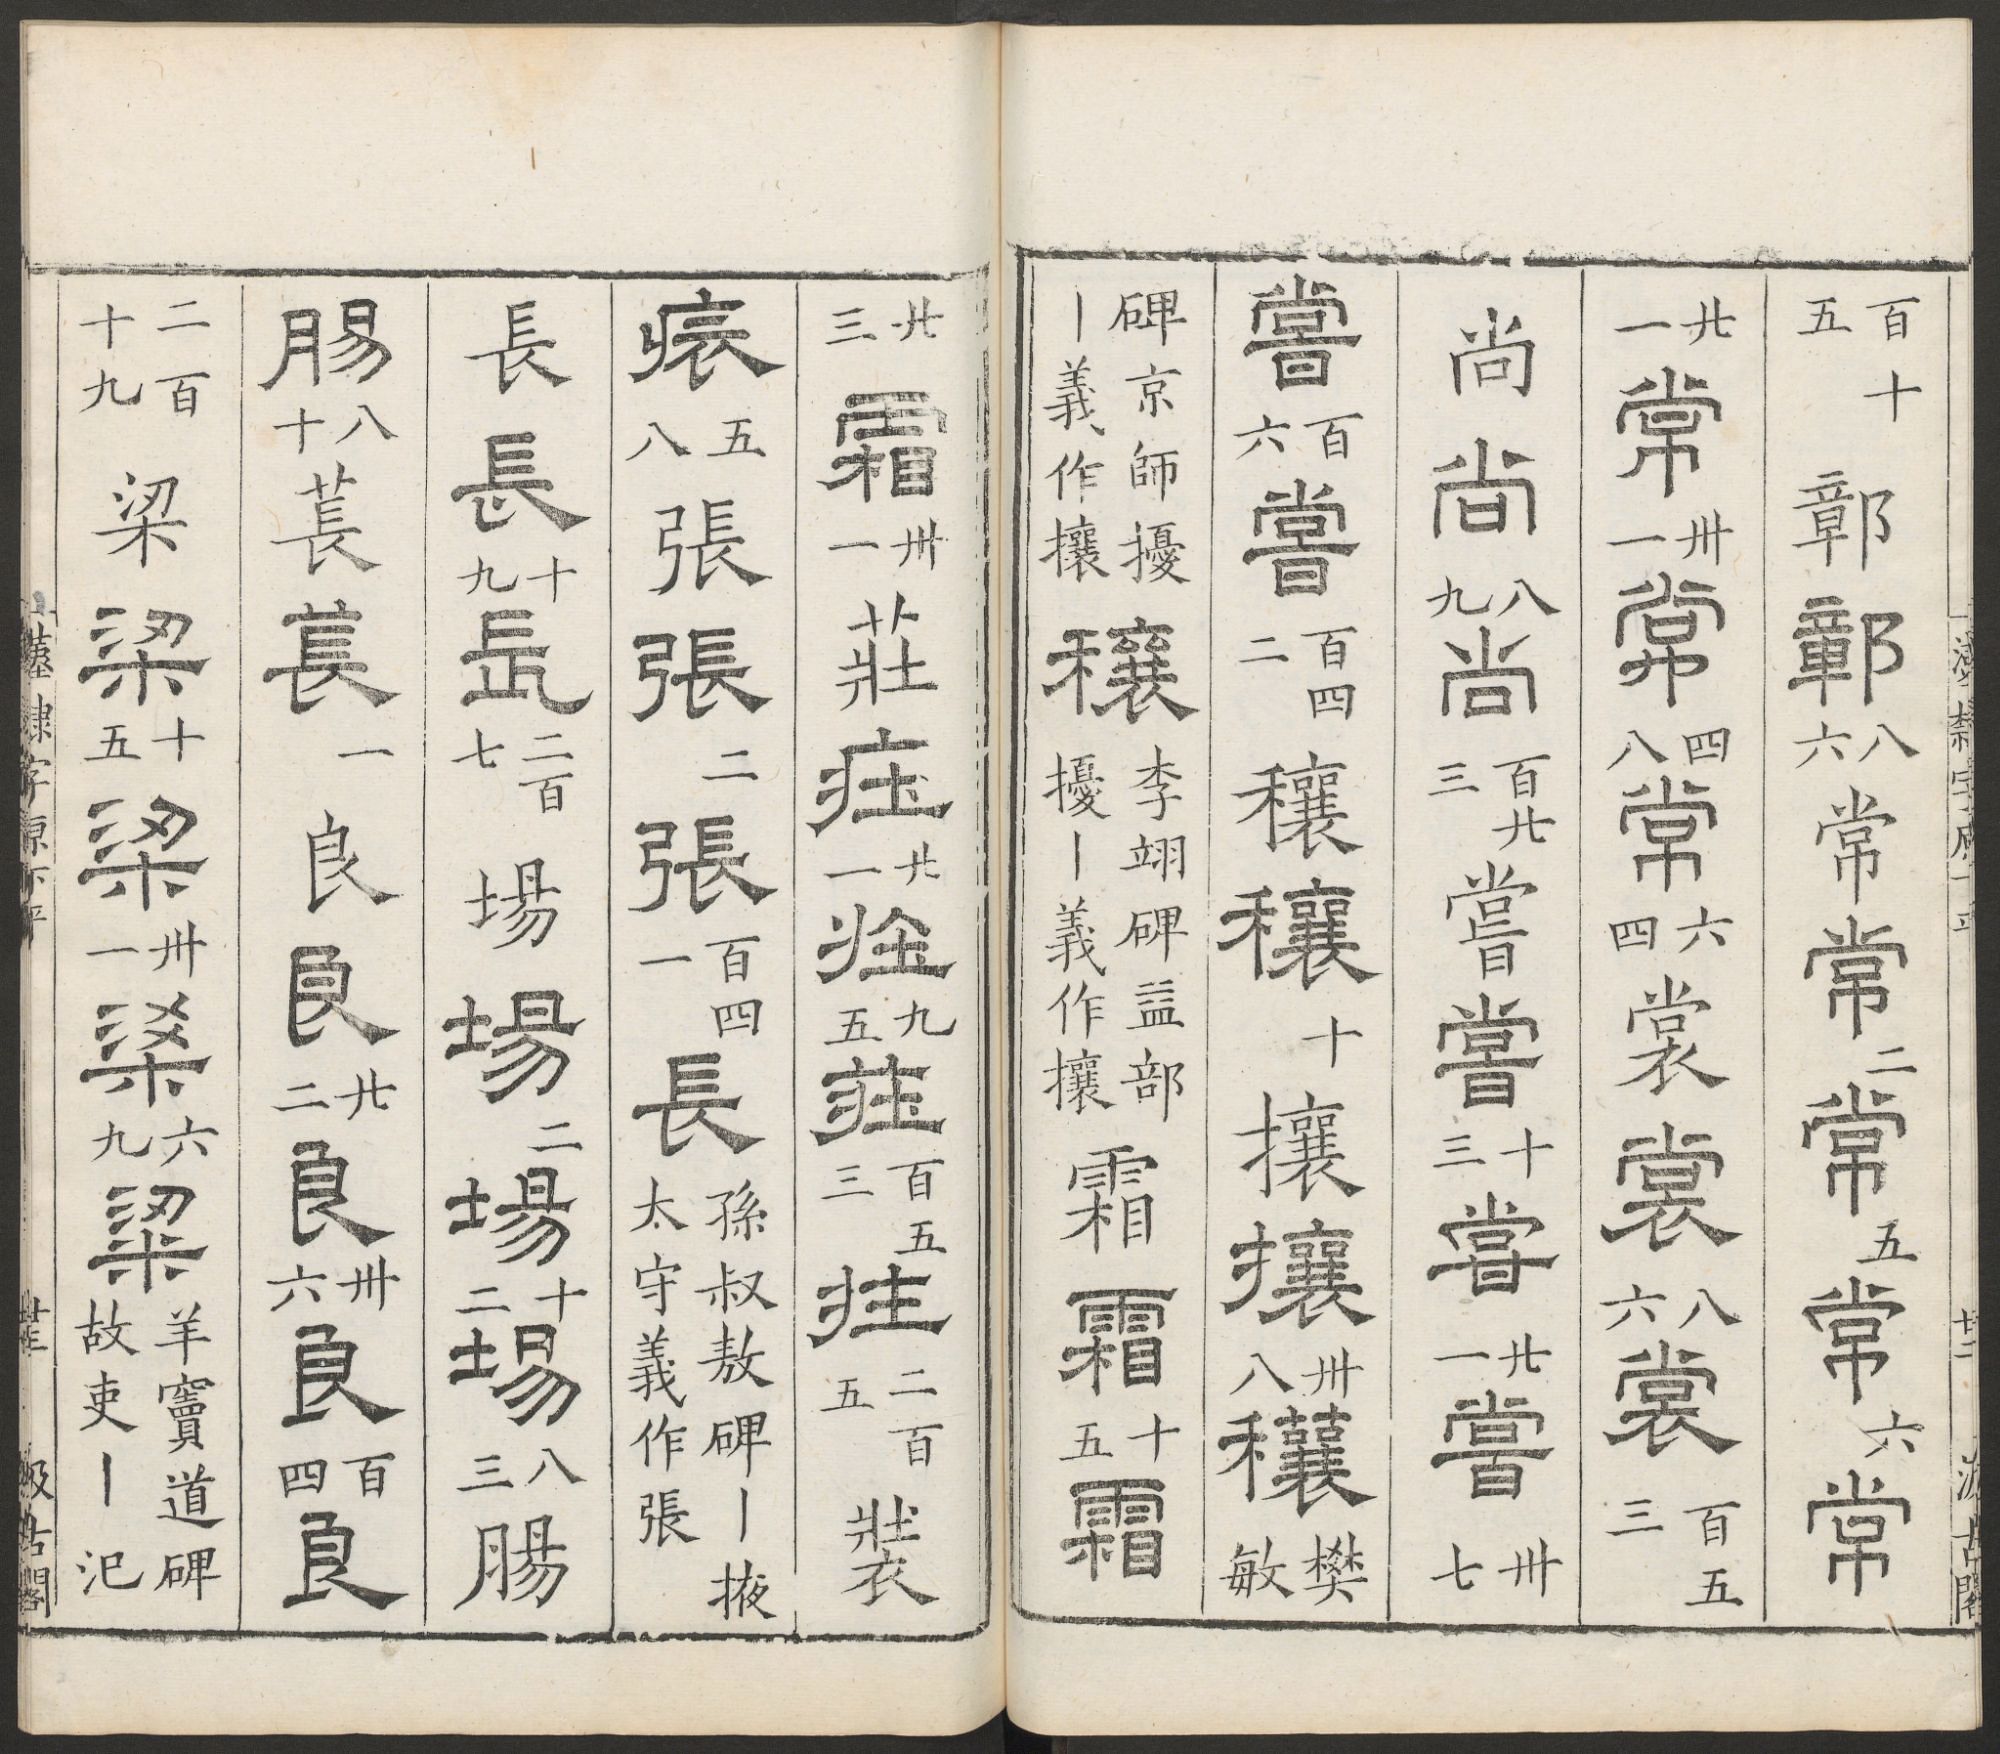 百十五鄣鄣八六常常二常五常六常
廿一常卅一常四八常六四裳裳八六裳百五三
尚尚八九尚百廿三嘗嘗十三嘗廿一嘗卅七
嘗百六嘗百四二穰穰十攘攘卅八穰樊敏
碑京師擾丨義作攘穰李翊碑益部擾丨義作攘霜霜十五霜
廿三霜卅一莊莊廿一莊九五莊百五三莊二百五裝
裝五八張張二張百四一長孫叔敖碑丨掖太守義作張
長長十九長二百七場場二場十二場八三腸
腸八十萇萇一良良廿二良卅六良百四良
二百十九梁梁十五梁卅一梁六九梁羊竇道碑故吏丨汜
漢隸字源下平
汲古閣